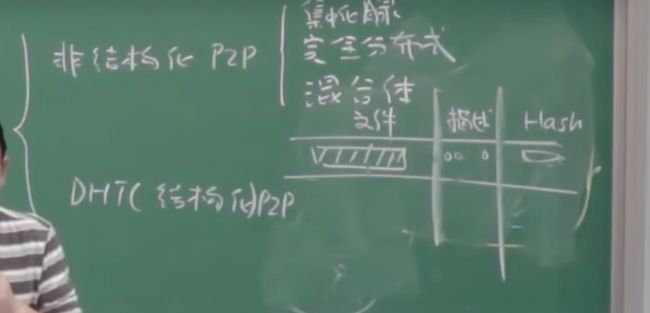 非结构化 P2P
集中目录
完全分布式
混合体
文件 描述 Hash
DHT(结构化)P2P